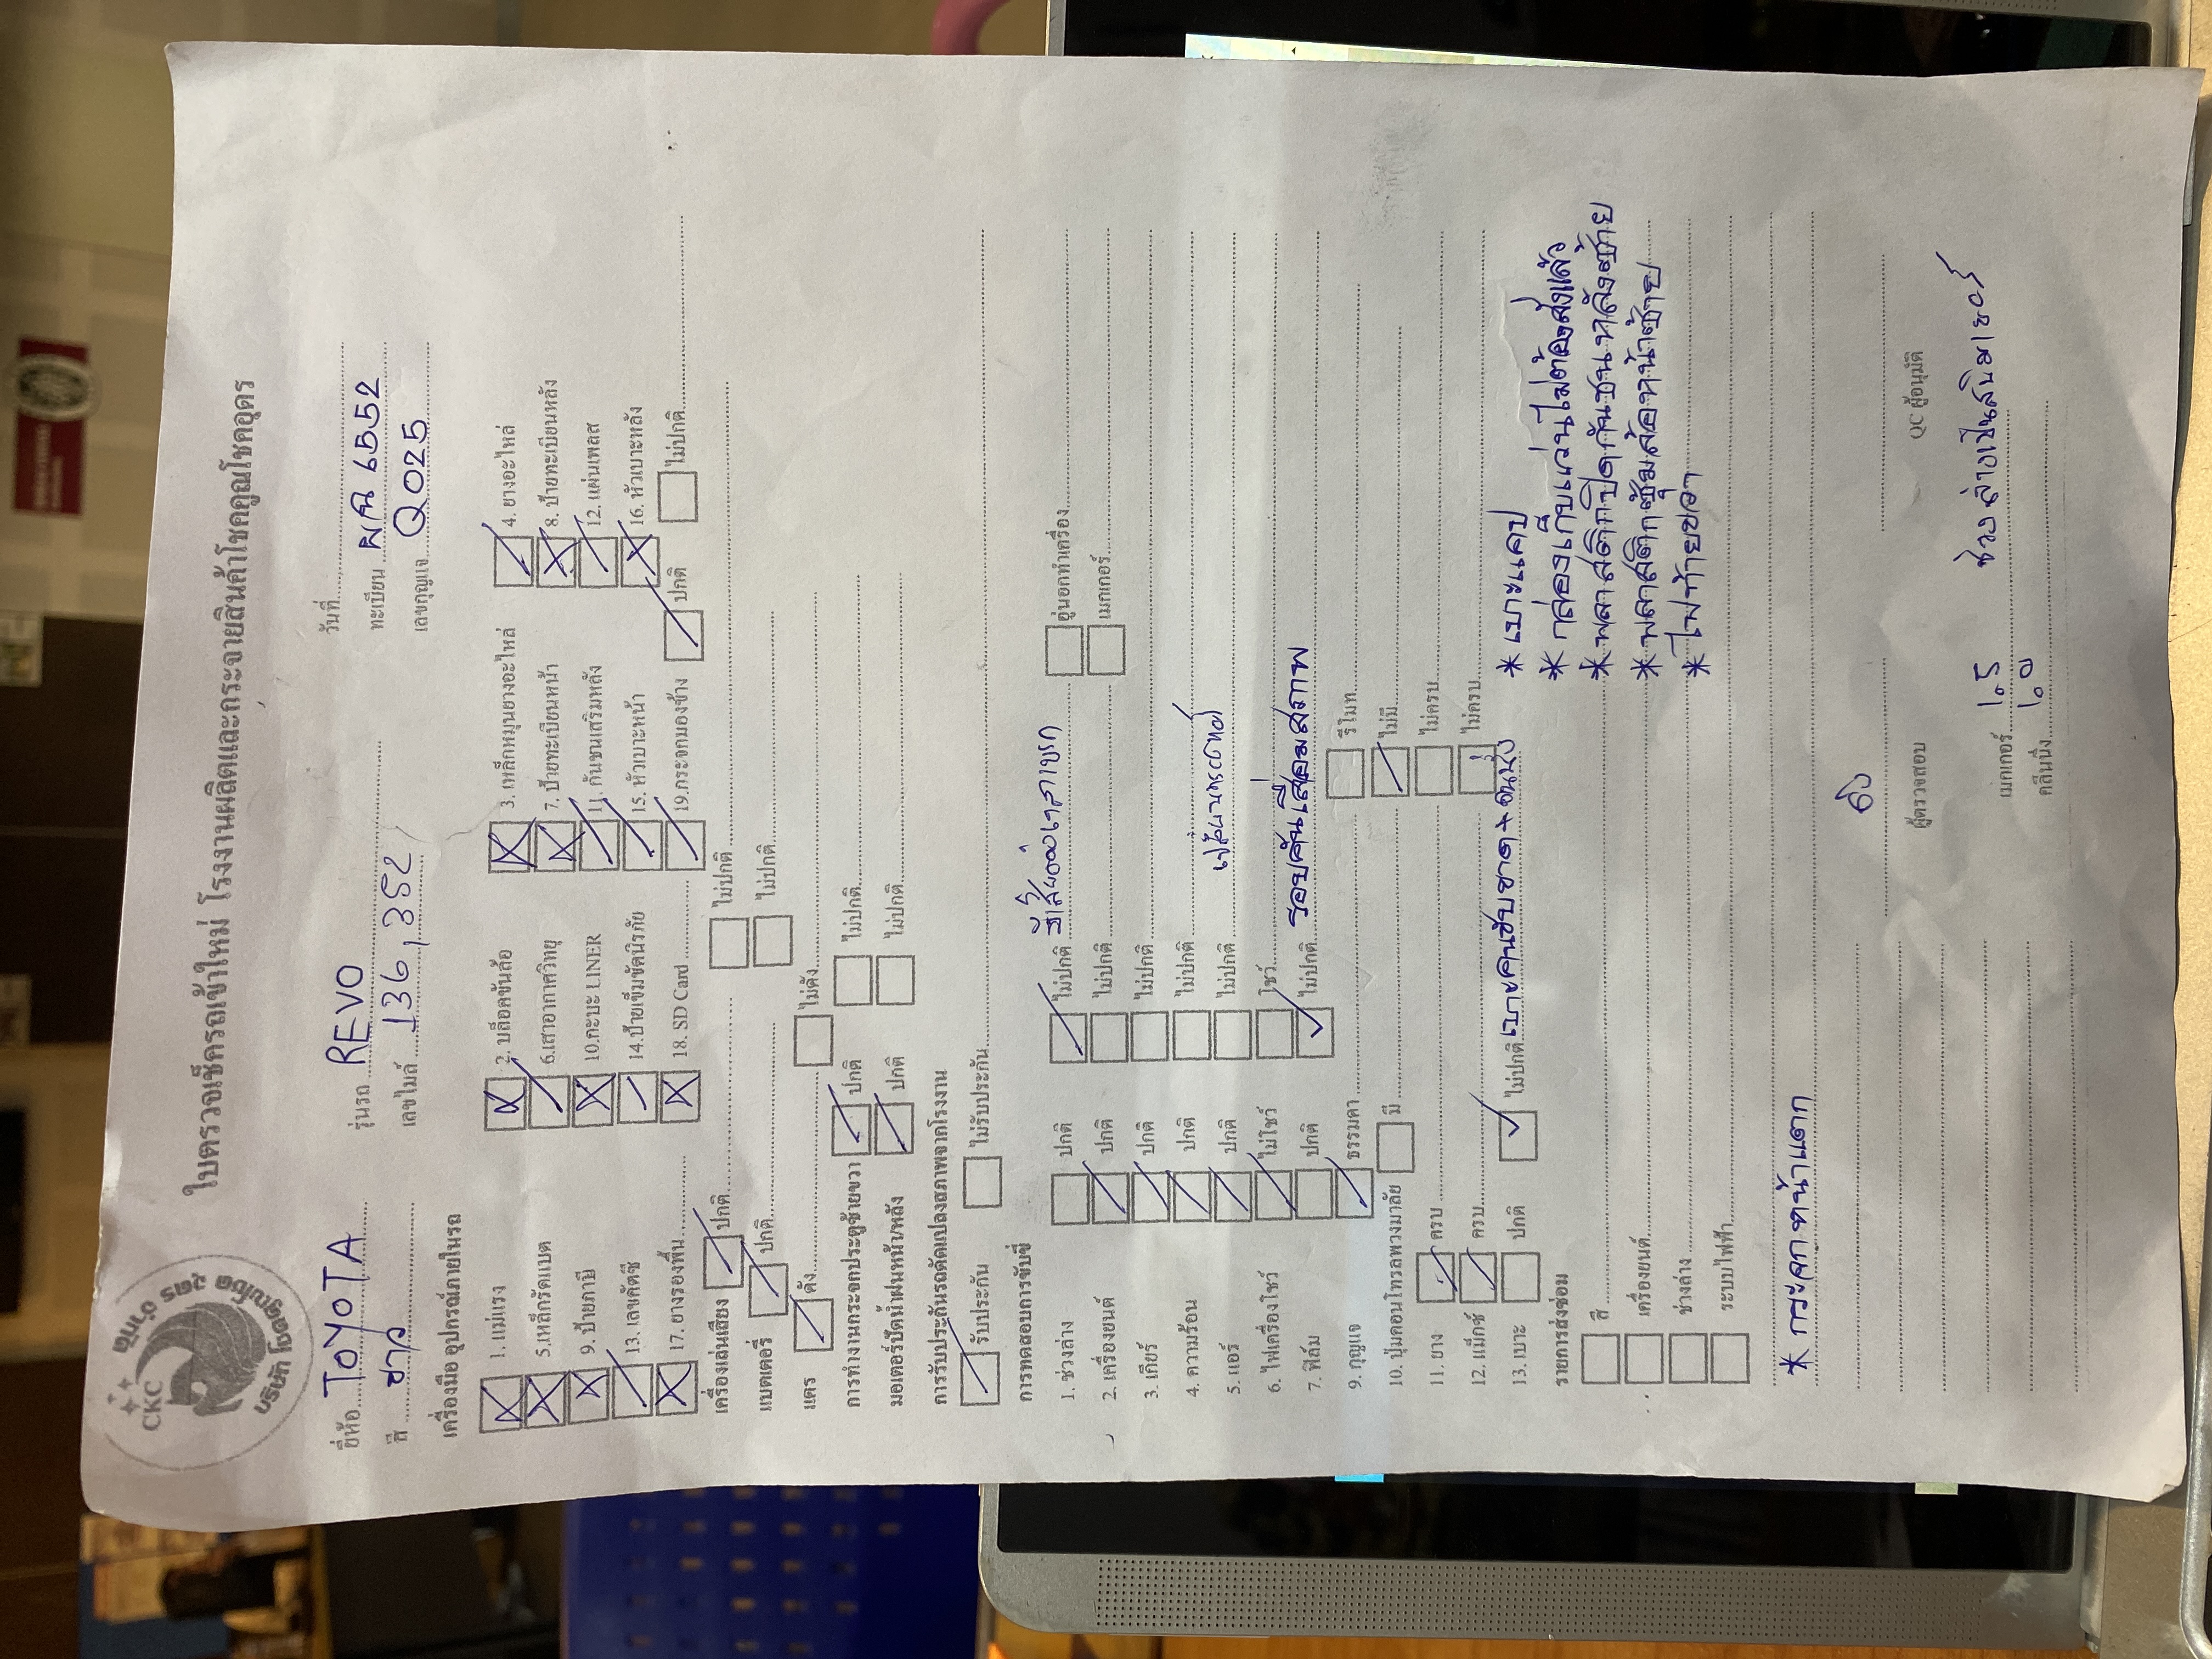 CKC
บริษัท โชคคูณโชค อุดร จำกัด
ใบตรวจเช็ครถเข้าใหม่ โรงงานผลิตและกระจายสินค้าโชคคูณโชคอุดร
วันที่
ยี่ห้อ TOYOTA รุ่นรถ REVO ทะเบียน 6552
สี ขาว เลขไมล์ 136,352 เลขกุญแจ Q025
เครื่องมือ อุปกรณ์ภายในรถ
1. แม่แรง 2. บล็อคขันล้อ 3. เหล็กหมุนยางอะไหล่ 4. ยางอะไหล่
5.เหล็กรัดแบต 6.เสาอากาศวิทยุ 7. ป้ายทะเบียนหน้า 8. ป้ายทะเบียนหลัง
9. ป้ายภาษี 10.กะบะ LINER 11. กันชนเสริมหลัง 12. แผ่นเพลส
13. เลขคัตซี 14.ป้ายเข็มขัดนิรภัย 15. หัวเบาะหน้า 16. หัวเบาะหลัง
17. ยางรองพื้น 18. SD Card 19.กระจกมองข้าง ปกติ ไม่ปกติ
เครื่องเล่นเสียง ปกติ ไม่ปกติ
แบตเตอรี่ ปกติ ไม่ปกติ
แตร ดัง ไม่ดัง
การทำงานกระจกประตูซ้ายขวา ปกติ ไม่ปกติ
มอเตอร์ปัดน้ำฝนหน้า/หลัง ปกติ ไม่ปกติ
การรับประกันรถดัดแปลงสภาพจากโรงงาน
รับประกัน ไม่รับประกัน
การทดสอบการขับขี่
1. ช่วงล่าง ปกติ ไม่ปกติ อู่นอกทำเครื่อง
2. เครื่องยนต์ ปกติ ไม่ปกติ เมกเกอร์
3. เกียร์ ปกติ ไม่ปกติ
4. ความร้อน ปกติ ไม่ปกติ
5. แอร์ ปกติ ไม่ปกติ
6. ไฟเครื่องโชว์ ไม่โชว์ โชว์
7. ฟิล์ม ปกติ ไม่ปกติ รอบคันเสื่อมสภาพ
9. กุญแจ ธรรมดา รีโมท
10. ปุ่มคอนโทรลพวงมาลัย มี ไม่มี
11. ยาง ครบ ไม่ครบ
12. แม็กซ์ ครบ ไม่ครบ
13. เบาะ ปกติ ไม่ปกติ เบาะคนขับขาด + *เบาะแคป
รายการส่งซ่อม * กล่องเก็บแว่นไม่ต้องส่งแล้ว
สี * พลาสติกปิดกันชนหลังซ้าย
เครื่องยนต์ * พลาสติกซุ้มล้อหน้าซ้าย
ช่วงล่าง * ไฟท้ายขวา
ระบบไฟฟ้า
* กระจกหน้าแตก
ผู้ตรวจสอบ QC ผู้อนุมัติ
เมกเกอร์ 1.5
คลีนนิ่ง 1.0